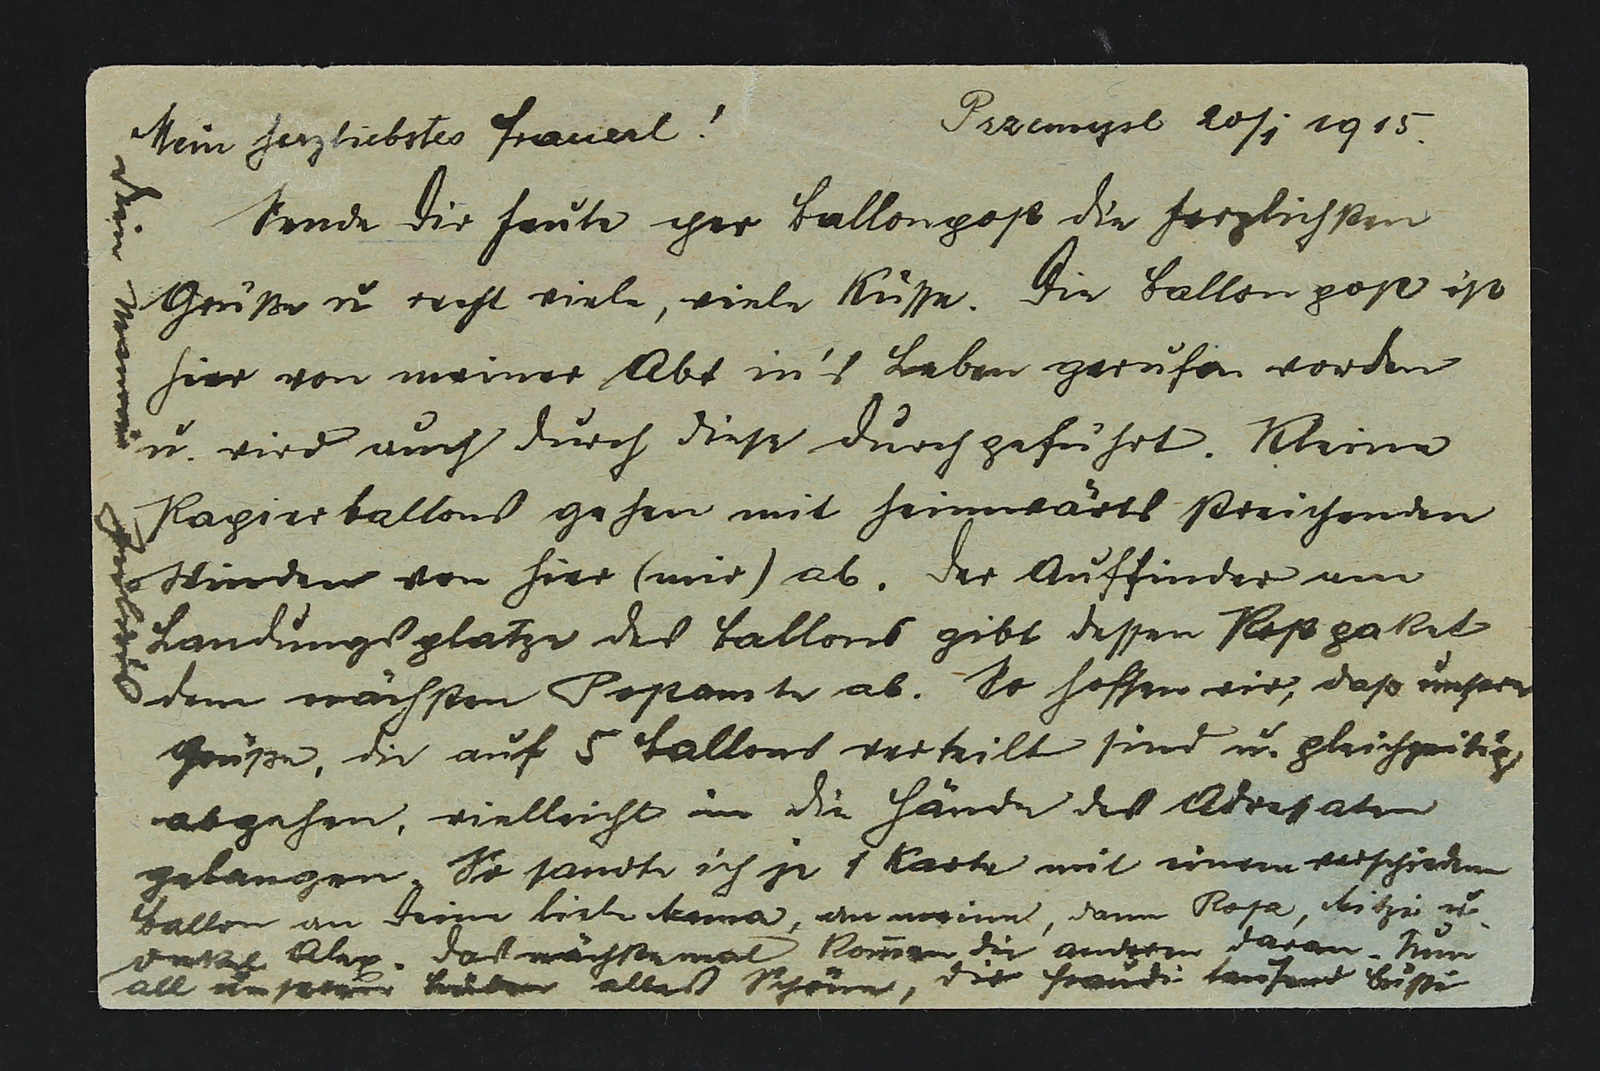 Przemysl 20/1 1915.
Mein herzliebstes Frauerl!
Sende Dir heute per Ballonpost die herzlichsten
Grüße u recht viele, viele Küsse. Die Ballonpost ist
hier von meiner Abt in's Leben gerufen worden
u. wird auch durch diese durchgeführt. Kleine
Papierballons gehen mit heimwärts streichenden
Winden von hier (mir) ab. Der Auffinder am
Landungsplatze des Ballons gibt dessen Postpaket
dem nächsten Postamte ab. So hoffen wir, daß unsere
Grüße, die auf 5 Ballons verteilt sind u. gleichzeitig
abgehen, vielleicht in die Hände des Adressaten
gelangen. So sandte ich je 1 Karte mit einem verschiedenen
Ballon an Deine liebe Mama, an meine, dann Rosa, Mitzi u.
Onkel Alex. Das nächstemal kom̅en die anderen daran. Nun
all unseren Lieben alles Schöne, Dir Fraudi tausend Bussi
Dein